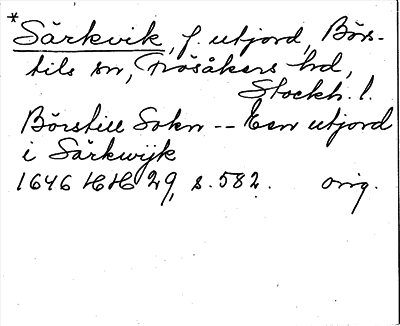 * Särkvik, f. utjord, Börs-
tils sn, Frösåkers hd,
Stockh. l.
Börstill Sokn -- Een utjord
i Särkwijk
1646 HH 29, s. 582. orig.